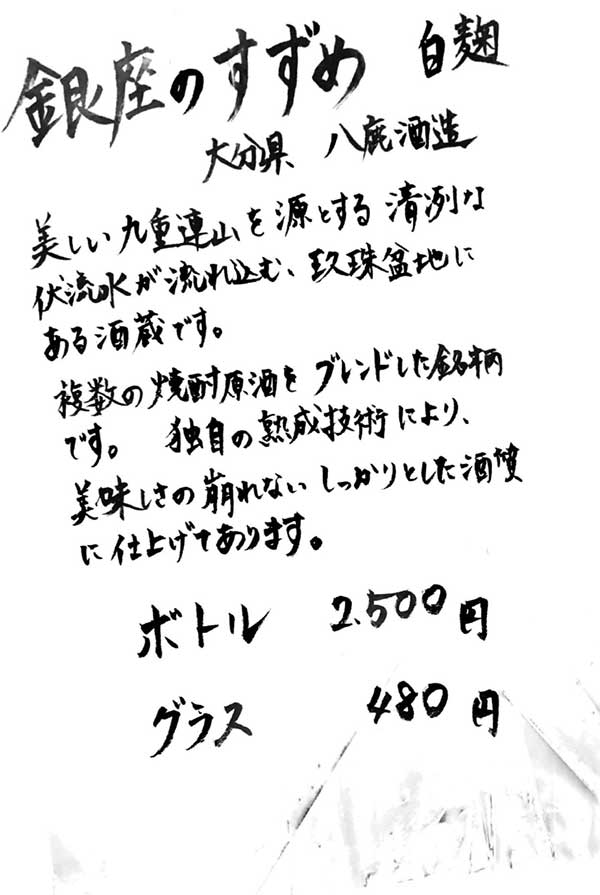 銀座のすずめ 白麹
大分県 八鹿酒造
美しい九重連山を源とする清冽な
伏流水が流れ込む、玖珠盆地に
ある酒蔵です。
複数の焼酎原酒をブレンドした銘柄
です。 独自の熟成技術により、
美味しさの崩れないしっかりとした酒質
に仕上げてあります。
ボトル 2.500円
グラス 480円